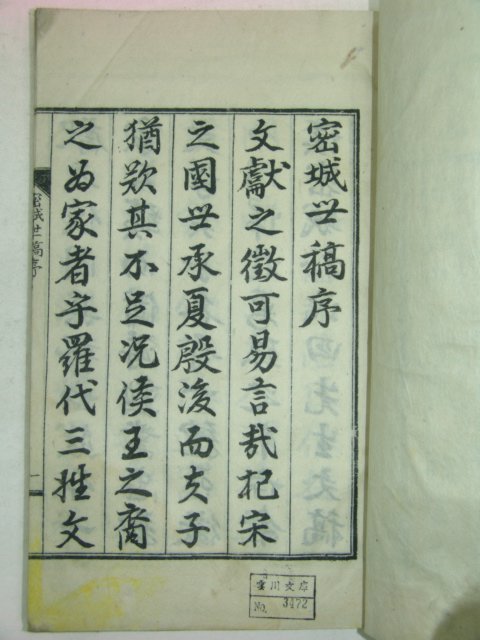 密城世稿序
文獻之徵可易言哉杞宋
之國世承夏殷後而夫子
猶歎其不足况侯王之裔
之爲家者乎羅代三姓文
密城世稿序
一
雲川文庫
No. 3472